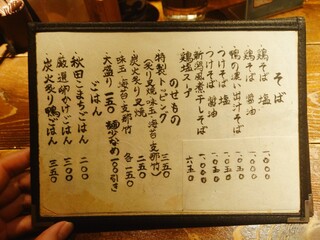 そば
鶏そば 塩 一、〇〇〇
鶏そば 醤油 一、〇〇〇
鴨の濃い出汁そば
つけそば 塩
つけそば 醤油
新潟風煮干しそば
鶏塩スープ 六五〇
のせもの
特製トッピング 三五〇
(炙り叉焼 味玉 海苔 支那竹)
炭火炙り叉焼 二五〇
味玉 海苔 支那竹 各一五〇
大盛り 一五〇 麺少なめ 一〇〇引き
ごはん
秋田こまちごはん 二〇〇
厳選卵かけごはん 三〇〇
炭火炙り鴨ごはん 三五〇